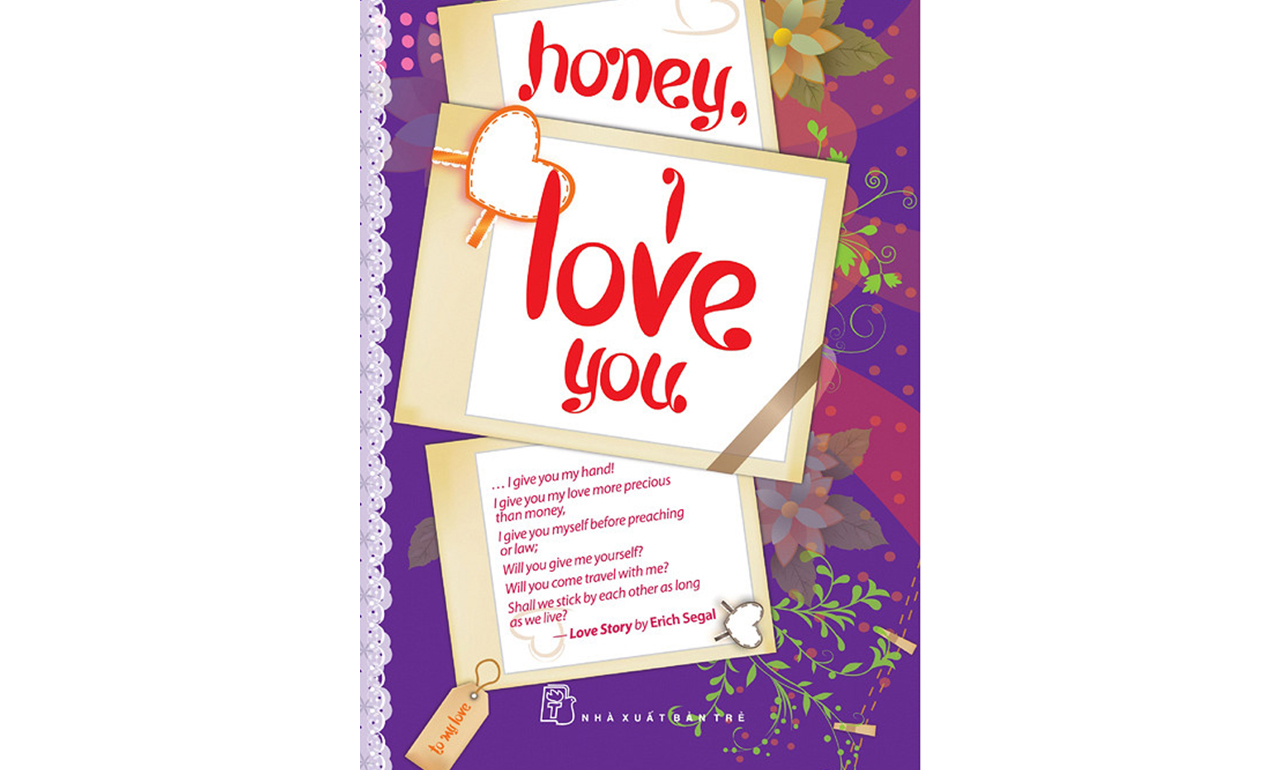 honey,
i
love
you
... I give you my hand!
I give you my love more precious
than money,
I give you myself before preaching
or law;
Will you give me yourself?
Will you come travel with me?
Shall we stick by each other as long
as we live?
— Love Story by Erich Segal
to my love
T
NHÀ XUẤT BẢN TRẺ